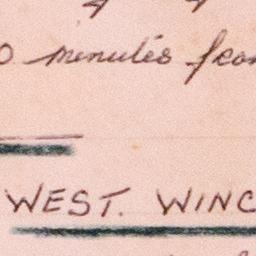 minutes from
WEST. WINC